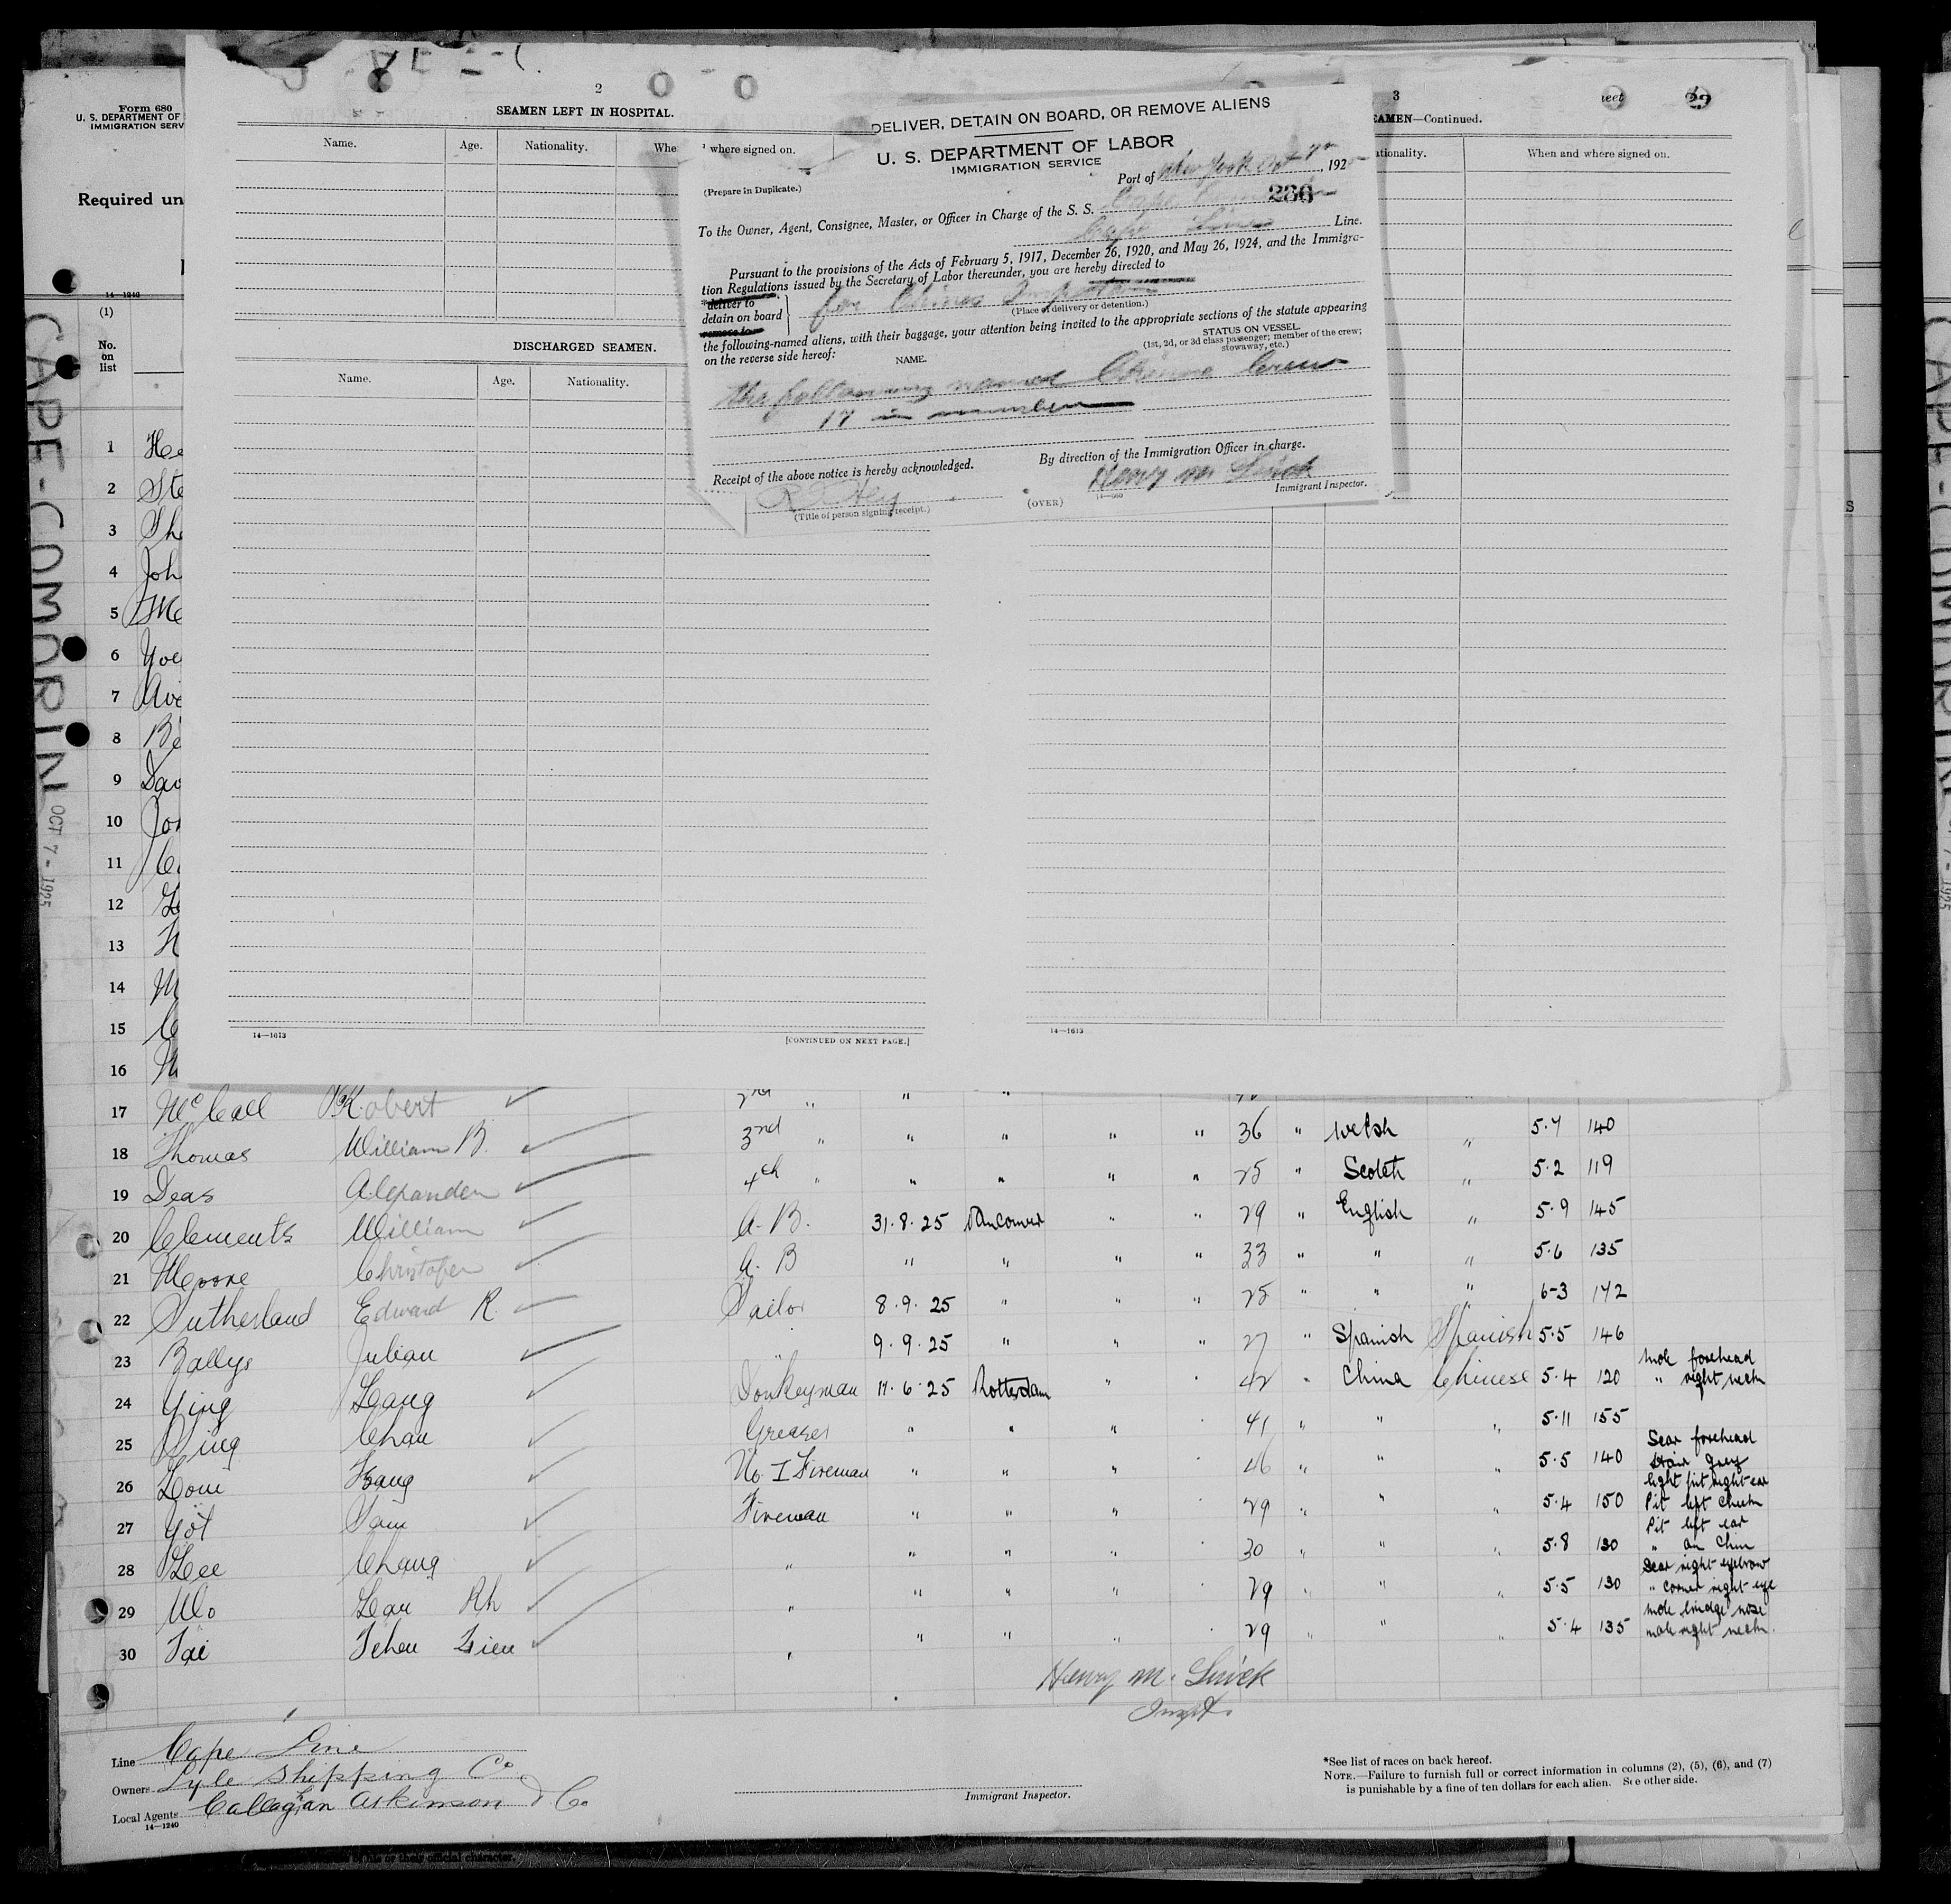 Form 680
U. S. DEPARTMENT OF
IMMIGRATION SERV
Required un
14—1240
(1)
No.
on
list
CAPE-COMORIN
OCT 7 - 1925
2
SEAMEN LEFT IN HOSPITAL.
Name. Age. Nationality. Whe
where signed on.
DISCHARGED SEAMEN.
Name. Age. Nationality.
14—1613
[CONTINUED ON NEXT PAGE.]
3
EAMEN—Continued.
ationality. When and where signed on.
14—1613
DELIVER, DETAIN ON BOARD, OR REMOVE ALIENS
U. S. DEPARTMENT OF LABOR
IMMIGRATION SERVICE
(Prepare in Duplicate.)
Port of New York Oct 7, 192
286
To the Owner, Agent, Consignee, Master, or Officer in Charge of the S. S. Cape
Cape Line Line.
Pursuant to the provisions of the Acts of February 5, 1917, December 26, 1920, and May 26, 1924, and the Immigra-
tion Regulations issued by the Secretary of Labor thereunder, you are hereby directed to
deliver to
detain on board
remove to
for Chinese
(Place of delivery or detention.)
the following-named aliens, with their baggage, your attention being invited to the appropriate sections of the statute appearing
on the reverse side hereof:
NAME.
STATUS ON VESSEL
(1st, 2d, or 3d class passenger; member of the crew;
stowaway, etc.)
the following named Chinese Crew
17 in number
By direction of the Immigration Officer in charge.
Receipt of the above notice is hereby acknowledged.
Henry M
Immigrant Inspector.
(Title of person signing receipt.)
(OVER)
14—560
1 He
2 Ste
3 The
4 Joh
5 Mc
6 You
7 Ave
8 Be
9 Dav
10 Jon
11
12
13 H
14 M
15 C
16 M
17 McCall Robert 2nd " " "
18 Thomas William B. 3nd " " " " " 36 " Welsh " 5.7 140
19 Deas Alexander 4th " " " " " 25 " Scotch " 5.2 119
20 Clements William A.B. 31.8.25 Vancouver " " 29 " English " 5.9 145
21 Moore Christofer A.B " " " " 33 " " " 5.6 135
22 Sutherland Edward R. Sailor 8.9.25 " " 25 " " " 6-3 142
23 Ballys Julian " 9.9.25 " " " 27 " Spanish Spanish 5.5 146
24 Ying Leang Donkeyman 11.6.25 Rotterdam " " 42 " China Chinese 5.4 120 mole forehead
" right neck
25 Ying Chan Greaser " " " " 41 " " " 5.11 155
26 Lom Kang No. I Fireman " " " " 46 " " " 5.5 140 Scar forehead
27 Yot Sam Fireman " " " " 29 " " " 5.4 150 light pit right ear
Pit left cheek
28 Lee Chang " " " " " 30 " " " 5.8 130 Pit left ear
" on Chin
29 Wo Lean Rh " " " " " 29 " " " 5.5 130 Scar right eyebrow
" corner right eye
30 Tai Tchen Lien " " " " " 29 " " " 5.4 135 mole bridge nose
mole right neck.
Henry M.
Inspt.
Line Cape Line
Owners Lyle Shipping Co
Local Agents Callaghan Atkinson & Co.
14—1240
Immigrant Inspector.
*See list of races on back hereof.
NOTE.—Failure to furnish full or correct information in columns (2), (5), (6), and (7)
is punishable by a fine of ten dollars for each alien. See other side.
of his or their official character.